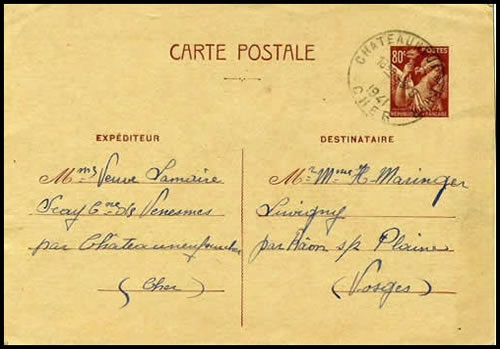 CARTE POSTALE
80c POSTES
RÉPUBLIQUE FRANÇAISE
CHATEAUN
1941
CHER
EXPÉDITEUR
Mme Veuve Lamaire
Cne de Venesmes
par Chateauneuf sur cher
(Cher)
DESTINATAIRE
Mr Mme H. Maringer
Luvigny
par Raon s/p Plaine
(Vosges)